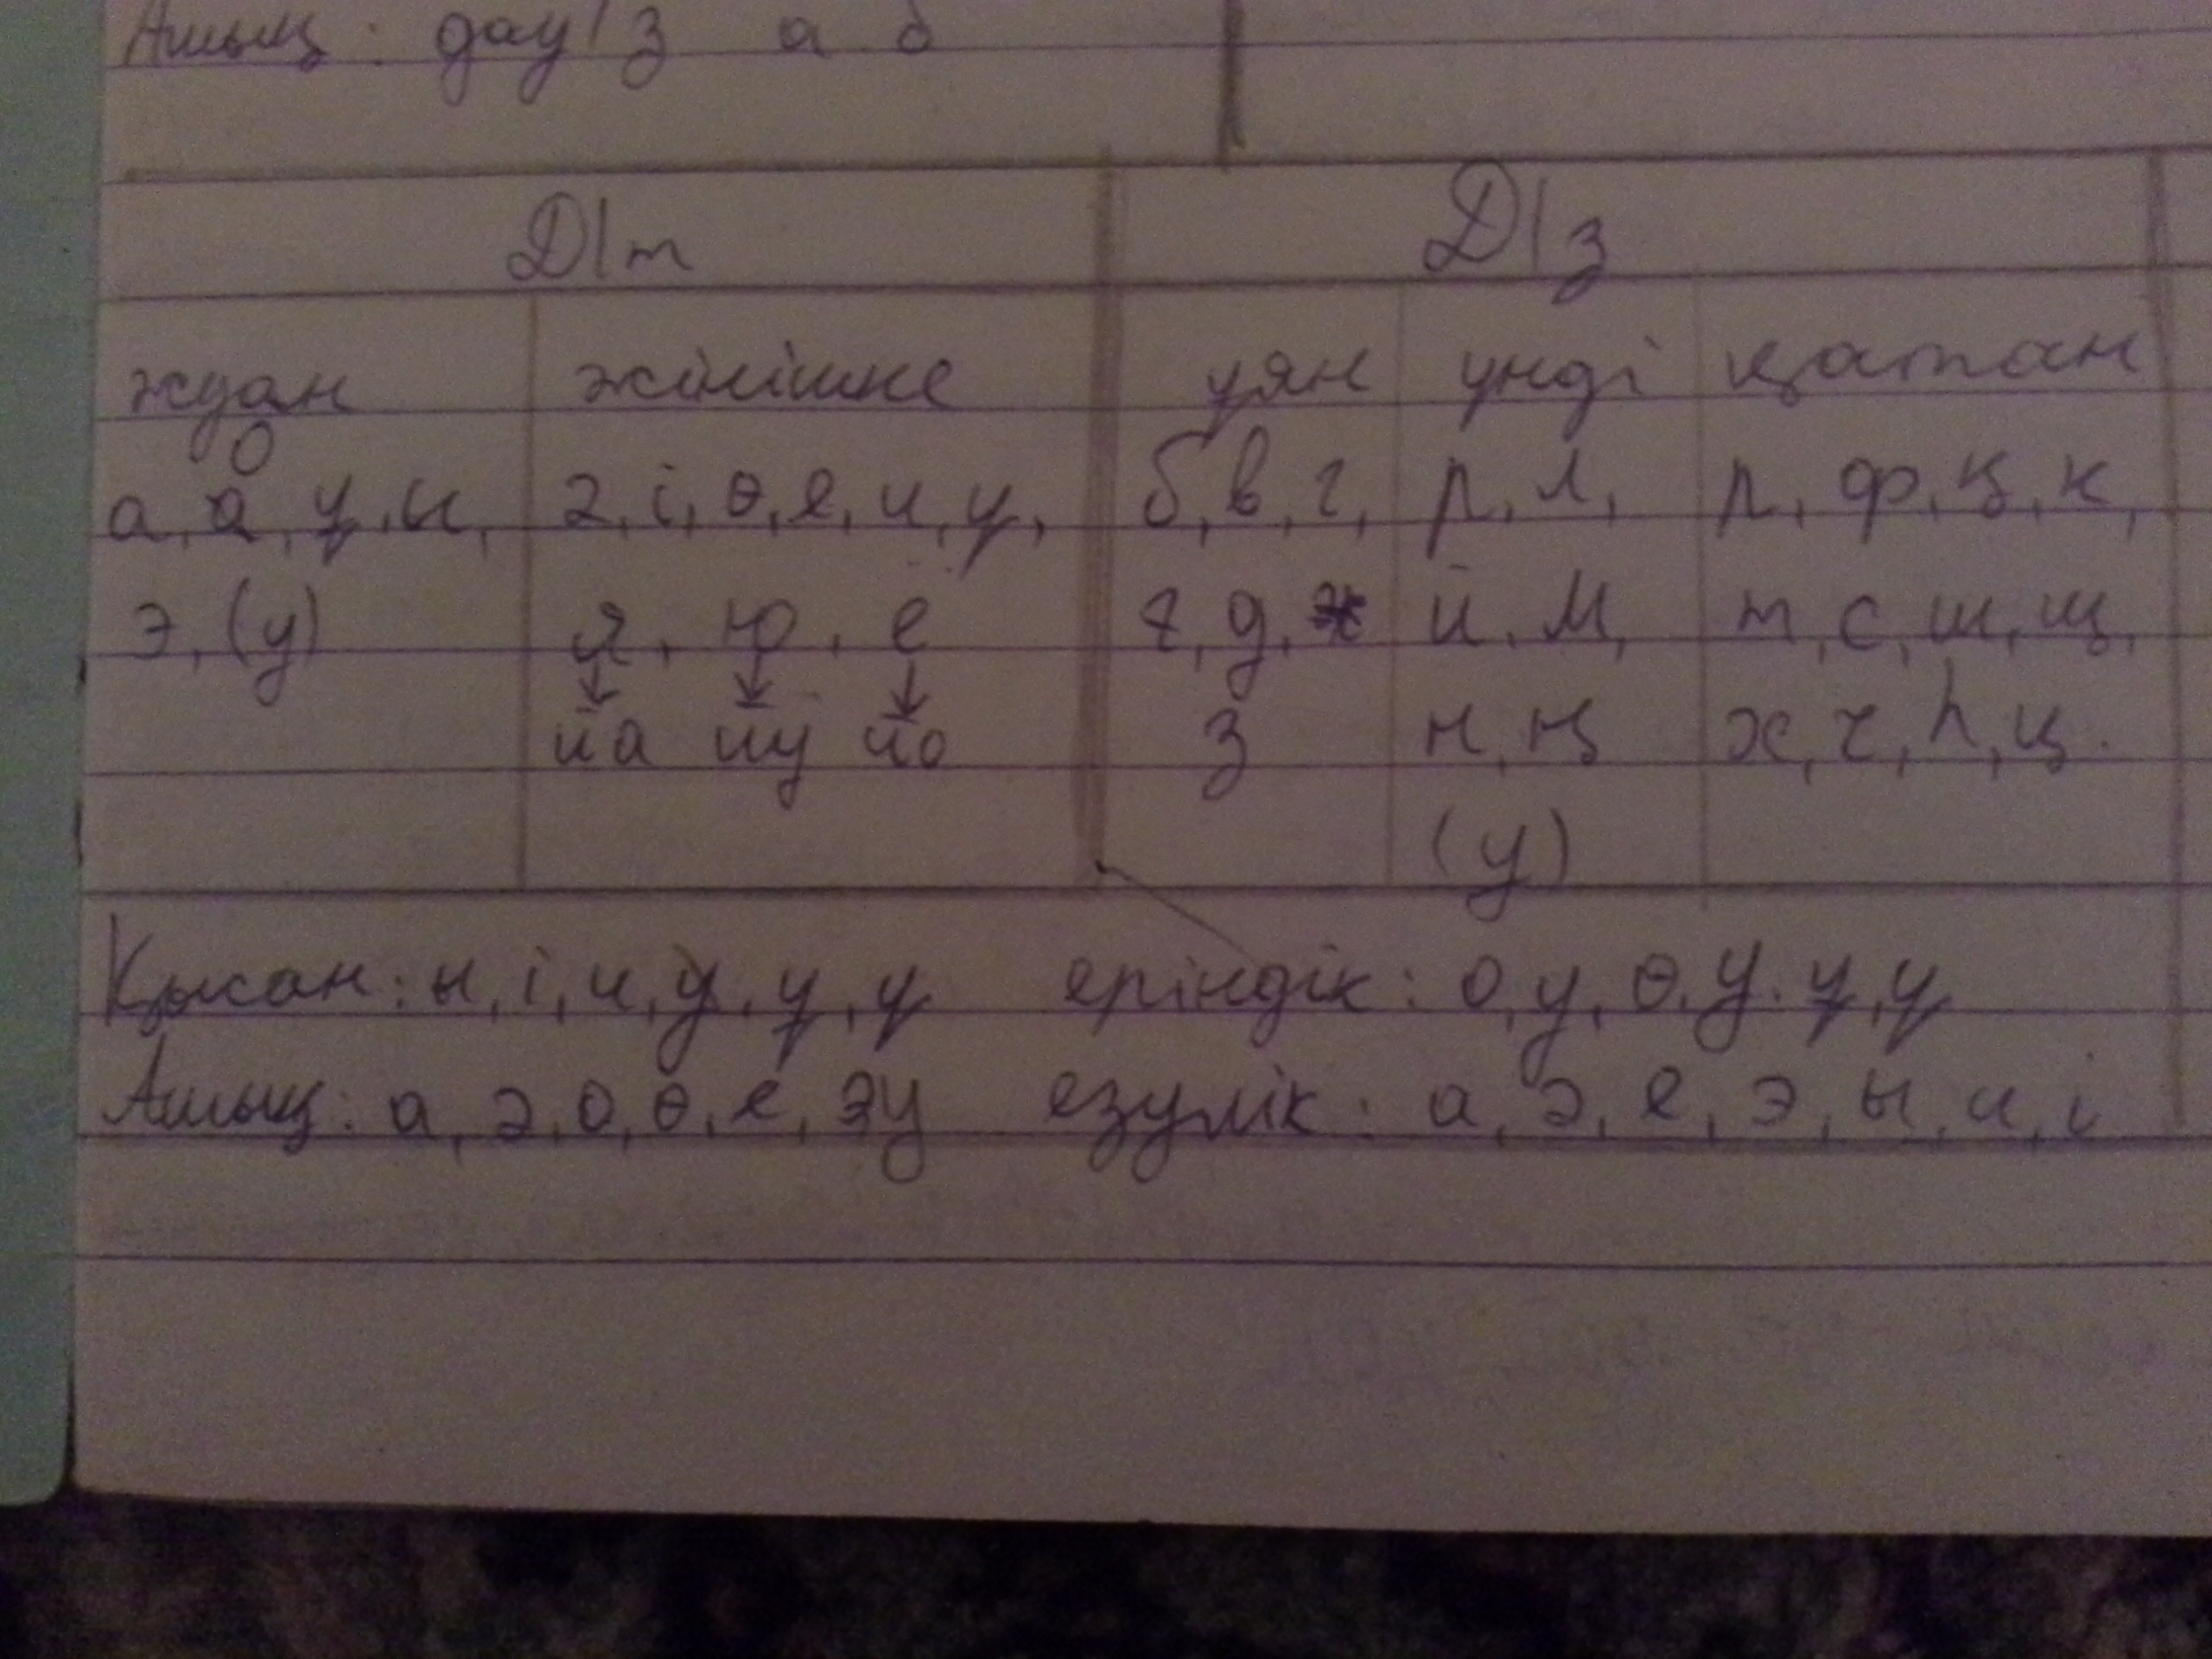 Ашық: дау/з а б
Д/т Д/з
жуан жіңішке ұян үнді қатаң
о
а, а, ұ, ы, ә, і, ө, е, и, ү, б, в, г, р, л, п, ф, қ, к,
э, (у) я, ю, е ғ, д, ж й, м, т, с, ш, щ,
йа йу йо з н, ң х, ч, һ, ц.
(у)
Қысаң: ы, і, и, у, ұ, ү еріндік: о, у, ө, у, ұ, ү
Ашық: а, ә, о, ө, е, эу езулік: а, ә, е, э, ы, и, і